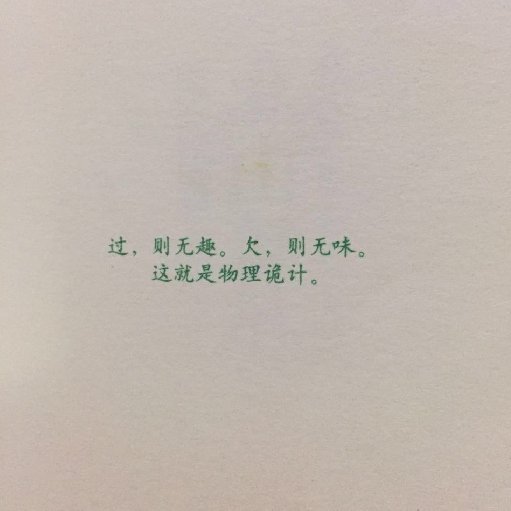 过，则无趣。欠，则无味。
这就是物理诡计。